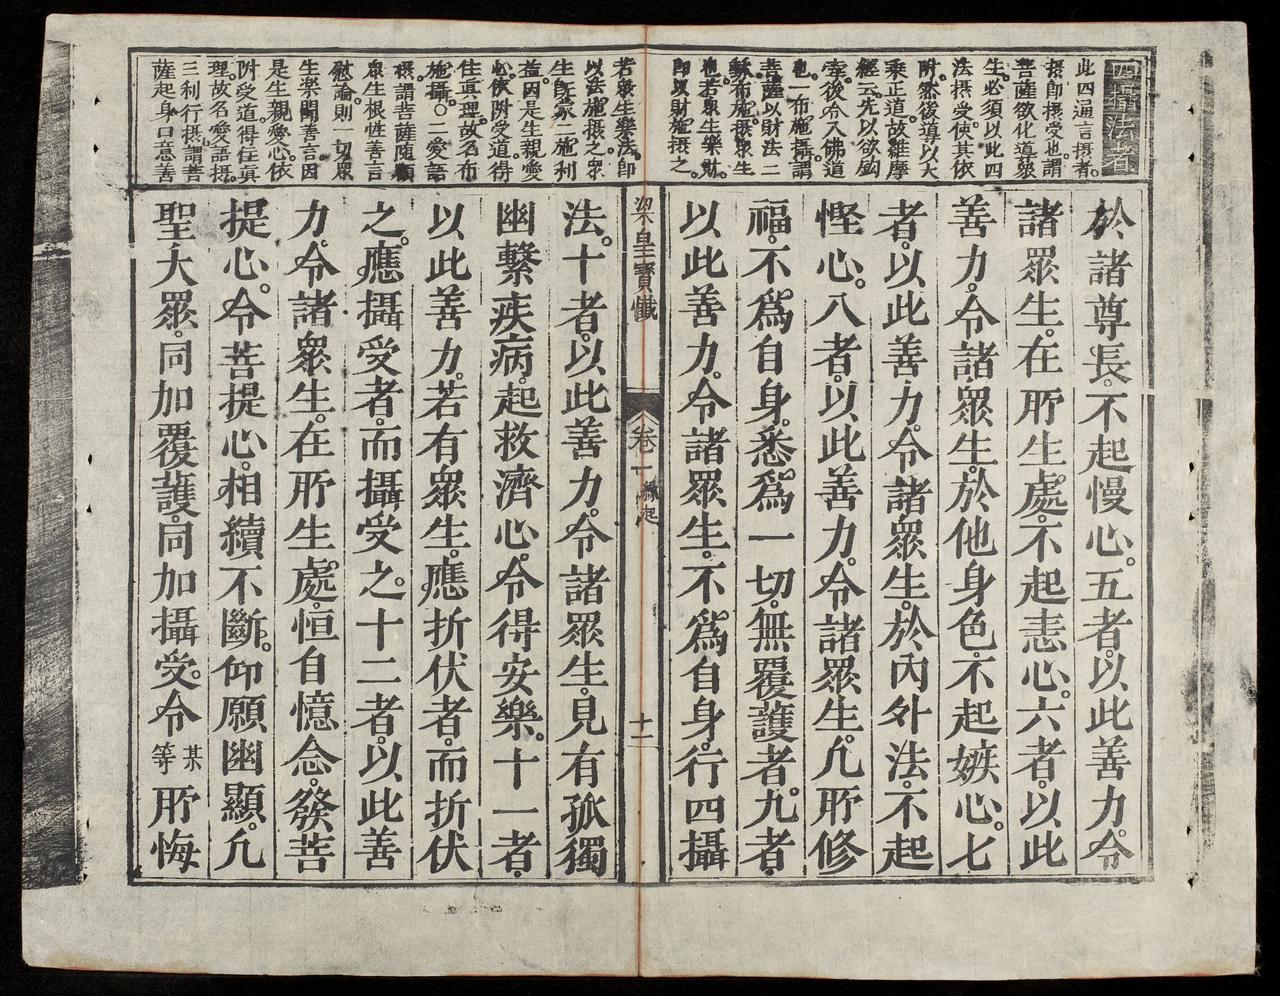 四攝法者
此四通言攝者。
攝即攝受也。謂
菩薩欲化道衆
生。必須以此四
法攝受。使其依
附。然後導以大
乘正道。故維摩
經云。先以欲鈎
牽。後令入佛道
也。一布施攝。謂
菩薩以財法二
種布施攝衆生
也。若衆生樂財。
即以財施攝之。
若衆生樂法。即
以法施攝之。衆
生既蒙二施利
益。因是生親愛
心。依附受道。得
住真理。故名布
施攝。○二愛語
攝。謂菩薩隨順
衆生根性。善言
慰諭。則一切衆
生樂聞善言。因
是生親愛心。依
附受道。得住真
理。故名愛語攝。
三利行攝。謂菩
薩起身口意善
於諸尊長。不起慢心。五者。以此善力。令
諸眾生。在所生處。不起恚心。六者。以此
善力。令諸眾生。於他身色。不起嫉心。七
者。以此善力。令諸眾生。於內外法。不起
慳心。八者。以此善力。令諸眾生。凡所修
福。不為自身。悉為一切。無覆護者。九者。
以此善力。令諸眾生。不為自身。行四攝
梁皇寶懺
卷一
緣起
十二
法。十者。以此善力。令諸眾生。見有孤獨
幽繫疾病。起救濟心。令得安樂。十一者。
以此善力。若有眾生。應折伏者。而折伏
之。應攝受者。而攝受之。十二者。以此善
力。令諸眾生。在所生處。恒自憶念。發菩
提心。令菩提心。相續不斷。仰願幽顯。凡
聖大眾。同加覆護。同加攝受。令某等所悔